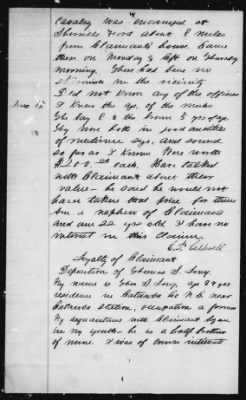 4
Cavalry was encamped at
Sherrills Ford about 8 miles
from Claimants house. Came
there on Monday & left on Thursday
morning. There had been no
in vicinity
I did not know any of the officers
I knew the age of the mules
The bay 8 & the brown 5 yrs of age
They were both in good condition
of medium size, and sound
so far as I know. Were worth
$200.00 each. Have talked
with Claimant about their
value - he said he would not
have taken that price for them
Am a nephew of Claimant
and am 22 yrs old. I have no
interest in this Claim.
C.F. Caldwell
Loyalty of Claimant
Deposition of Thomas S. Long.
My name is Thos S. Long, age 29 years
residence in Catawba Co N.C. near
Catawba Station, occupation a farmer
My acquaintance with Claimant began
in my youth he is a half brother
of mine. I was of